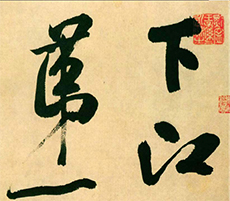 下江
第一